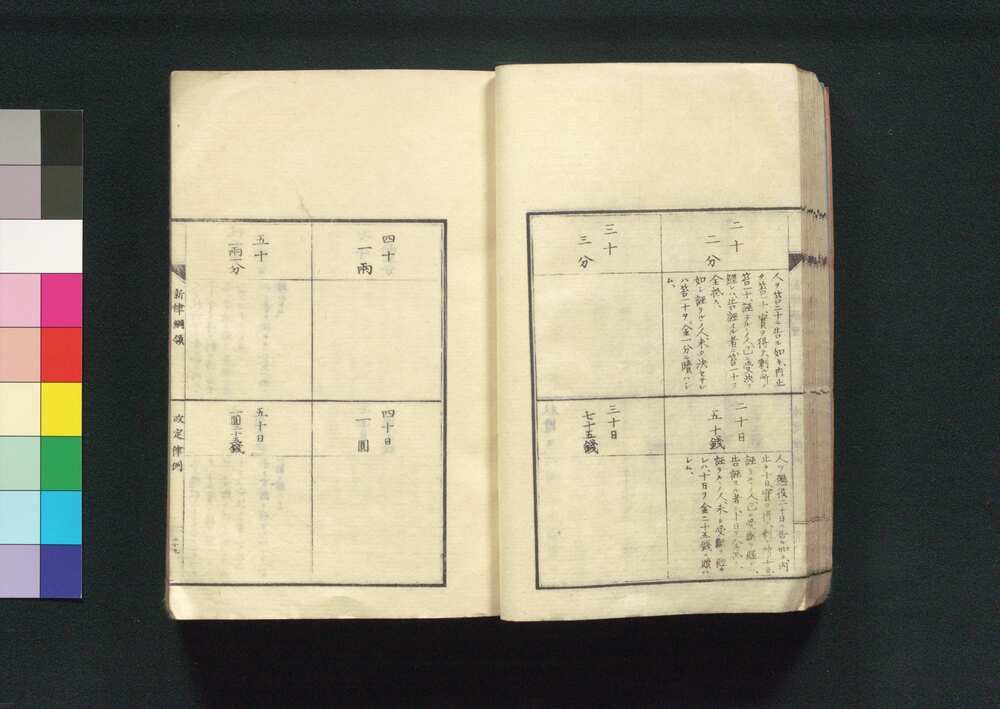 二十
二分
人ヲ笞二十ニ告ル如キ、内止
タ笞一十、實ヲ得、剩ス所ノ
笞一十誣タル、ノ人、已ニ受決ヲ
經レハ、告誣スル者ニ笞一十ヲ
全抵ス、
如シ誣ヲルノ人、未タ決セサレ
ハ、笞一十ヲ、金一分ニ贖ハシ
ム、
三十
三分
二十日
五十錢
人ヲ懲役二十日ニ告ル如キ、内
止タ十日、實ヲ得、剩ス所ノ十日、
告誣スル者ニ、十日ヲ全抵ス、
レハ、十日ヲ金二十五錢ニ贖ハ
シム、
三十日
七十五錢
四十
一兩
五十
一兩一分
四十日
一圓
五十日
一圓二十五錢
新律綱領
改定律例